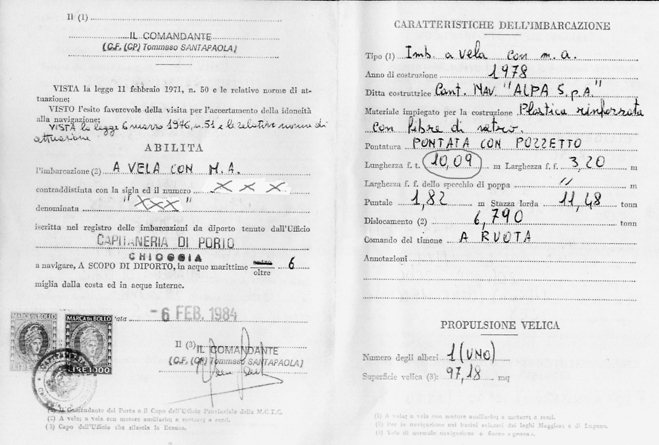 Il (1)
IL COMANDANTE
(C.F. (CP) Tommaso SANTAPAOLA)
VISTA la legge 11 febbraio 1971, n. 50 e le relative norme di at-
tuazione;
VISTO l'esito favorevole della visita per l'accertamento della idoneità
alla navigazione;
VISTA la legge 6 marzo 1976, n. 51 e le relative norme di
attuazione
ABILITA
l'imbarcazione (2) A VELA CON M.A.
contraddistinta con la sigla ed il numero XXX
denominata "XXX"
iscritta nel registro delle imbarcazioni da diporto tenuto dall'Ufficio
CAPITANERIA DI PORTO
CHIOGGIA
a navigare, A SCOPO DI DIPORTO, in acque marittime entro oltre 6
miglia dalla costa ed in acque interne.
MARCA DA BOLLO
MARCA DA BOLLO
LIRE 1000
Data - 6 FEB. 1984
Il (3) IL COMANDANTE
(C.F. (CP) Tommaso SANTAPAOLA)
(1) Il Comandante del Porto o il Capo dell'Ufficio Provinciale della M.C.T.C.
(2) A vela; a vela con motore ausiliario; a motore; a remi.
(3) Capo dell'Ufficio che rilascia la licenza.
CARATTERISTICHE DELL'IMBARCAZIONE
Tipo (1) Imb. a vela con m.a.
Anno di costruzione 1978
Ditta costruttrice Cant. Nav. "ALPA S.p.A."
Materiale impiegato per la costruzione Plastica rinforzata
con fibre di vetro.
Pontatura PONTATA CON POZZETTO
Lunghezza f. t. 10,09 m Larghezza f. f. 3,20 m
Larghezza f. f. dello specchio di poppa " m
Puntale 1,82 m Stazza lorda 11,48 tonn
Dislocamento (2) 6,790 tonn
Comando del timone A RUOTA
Annotazioni
PROPULSIONE VELICA
Numero degli alberi 1 (UNO)
Superficie velica (3): 97,18 mq
(1) A vela; a vela con motore ausiliario; a motore; a remi.